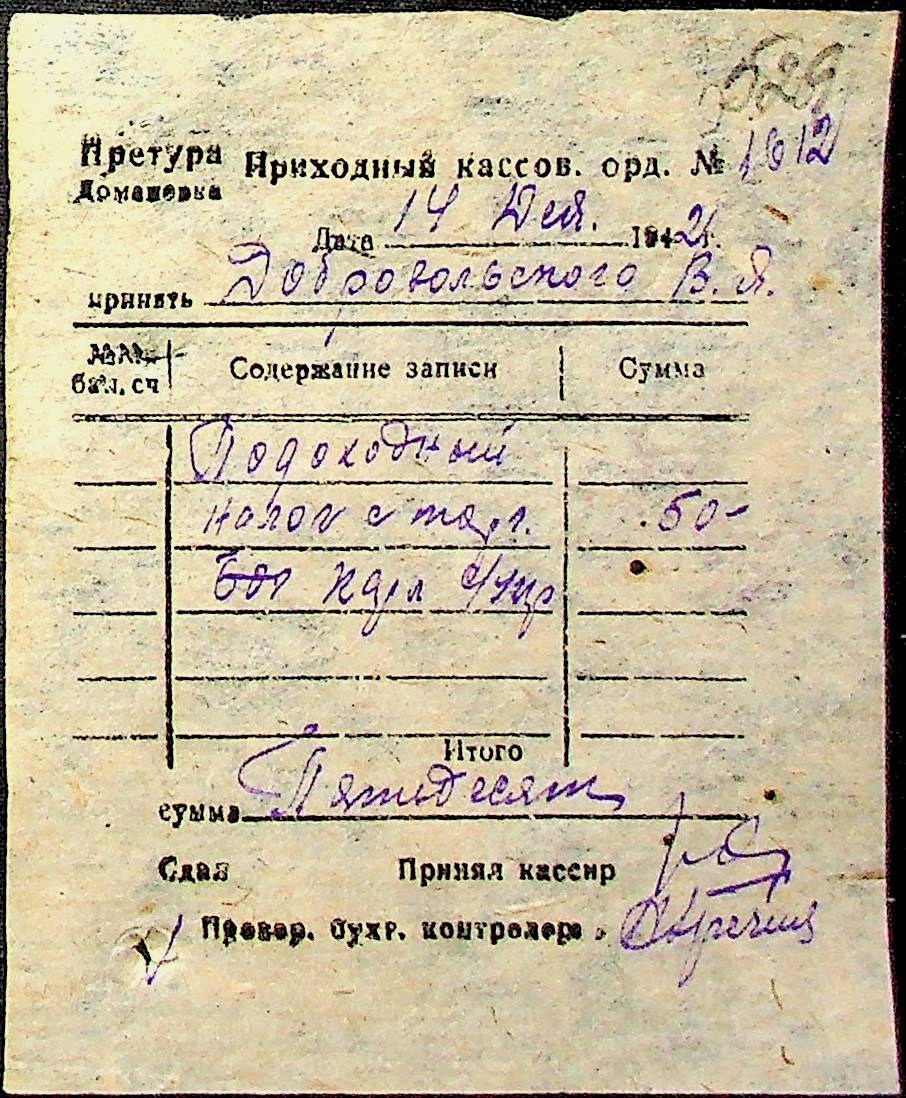 529
Претура Приходный кассов. орд. № 1612
Домашевка
Дата 14 Дек. 1942 г.
принять Добровольского В. Я.
№№ бал. сч Содержание записи Сумма
Подоходный
налог с торг. 50-
Итого
сумма Пятьдесят
Сдал Принял кассир
Провер. бухг. контролера